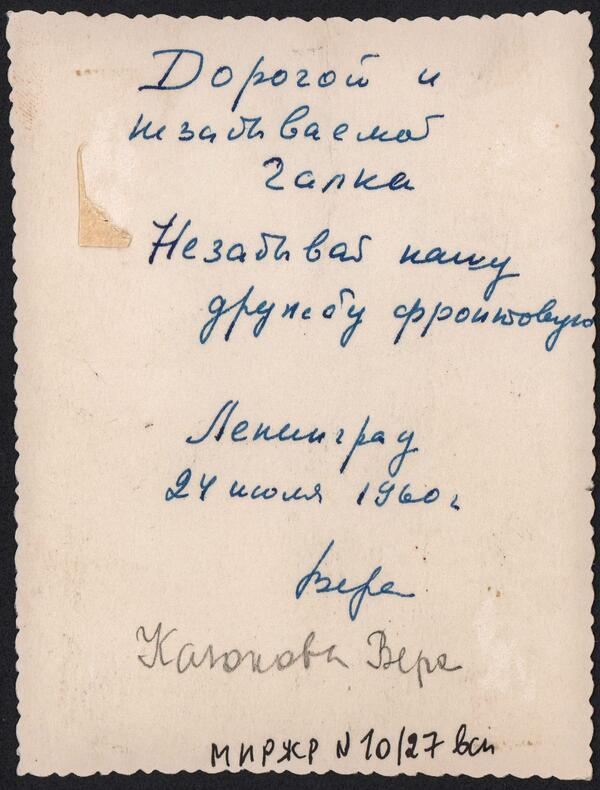 Дорогой и
незабываемой
Галка
Незабывай нашу
дружбу фронтовую
Ленинград
24 июля 1960 г
Вера
Катокова Вера
МИРЖР N 10/27 всп